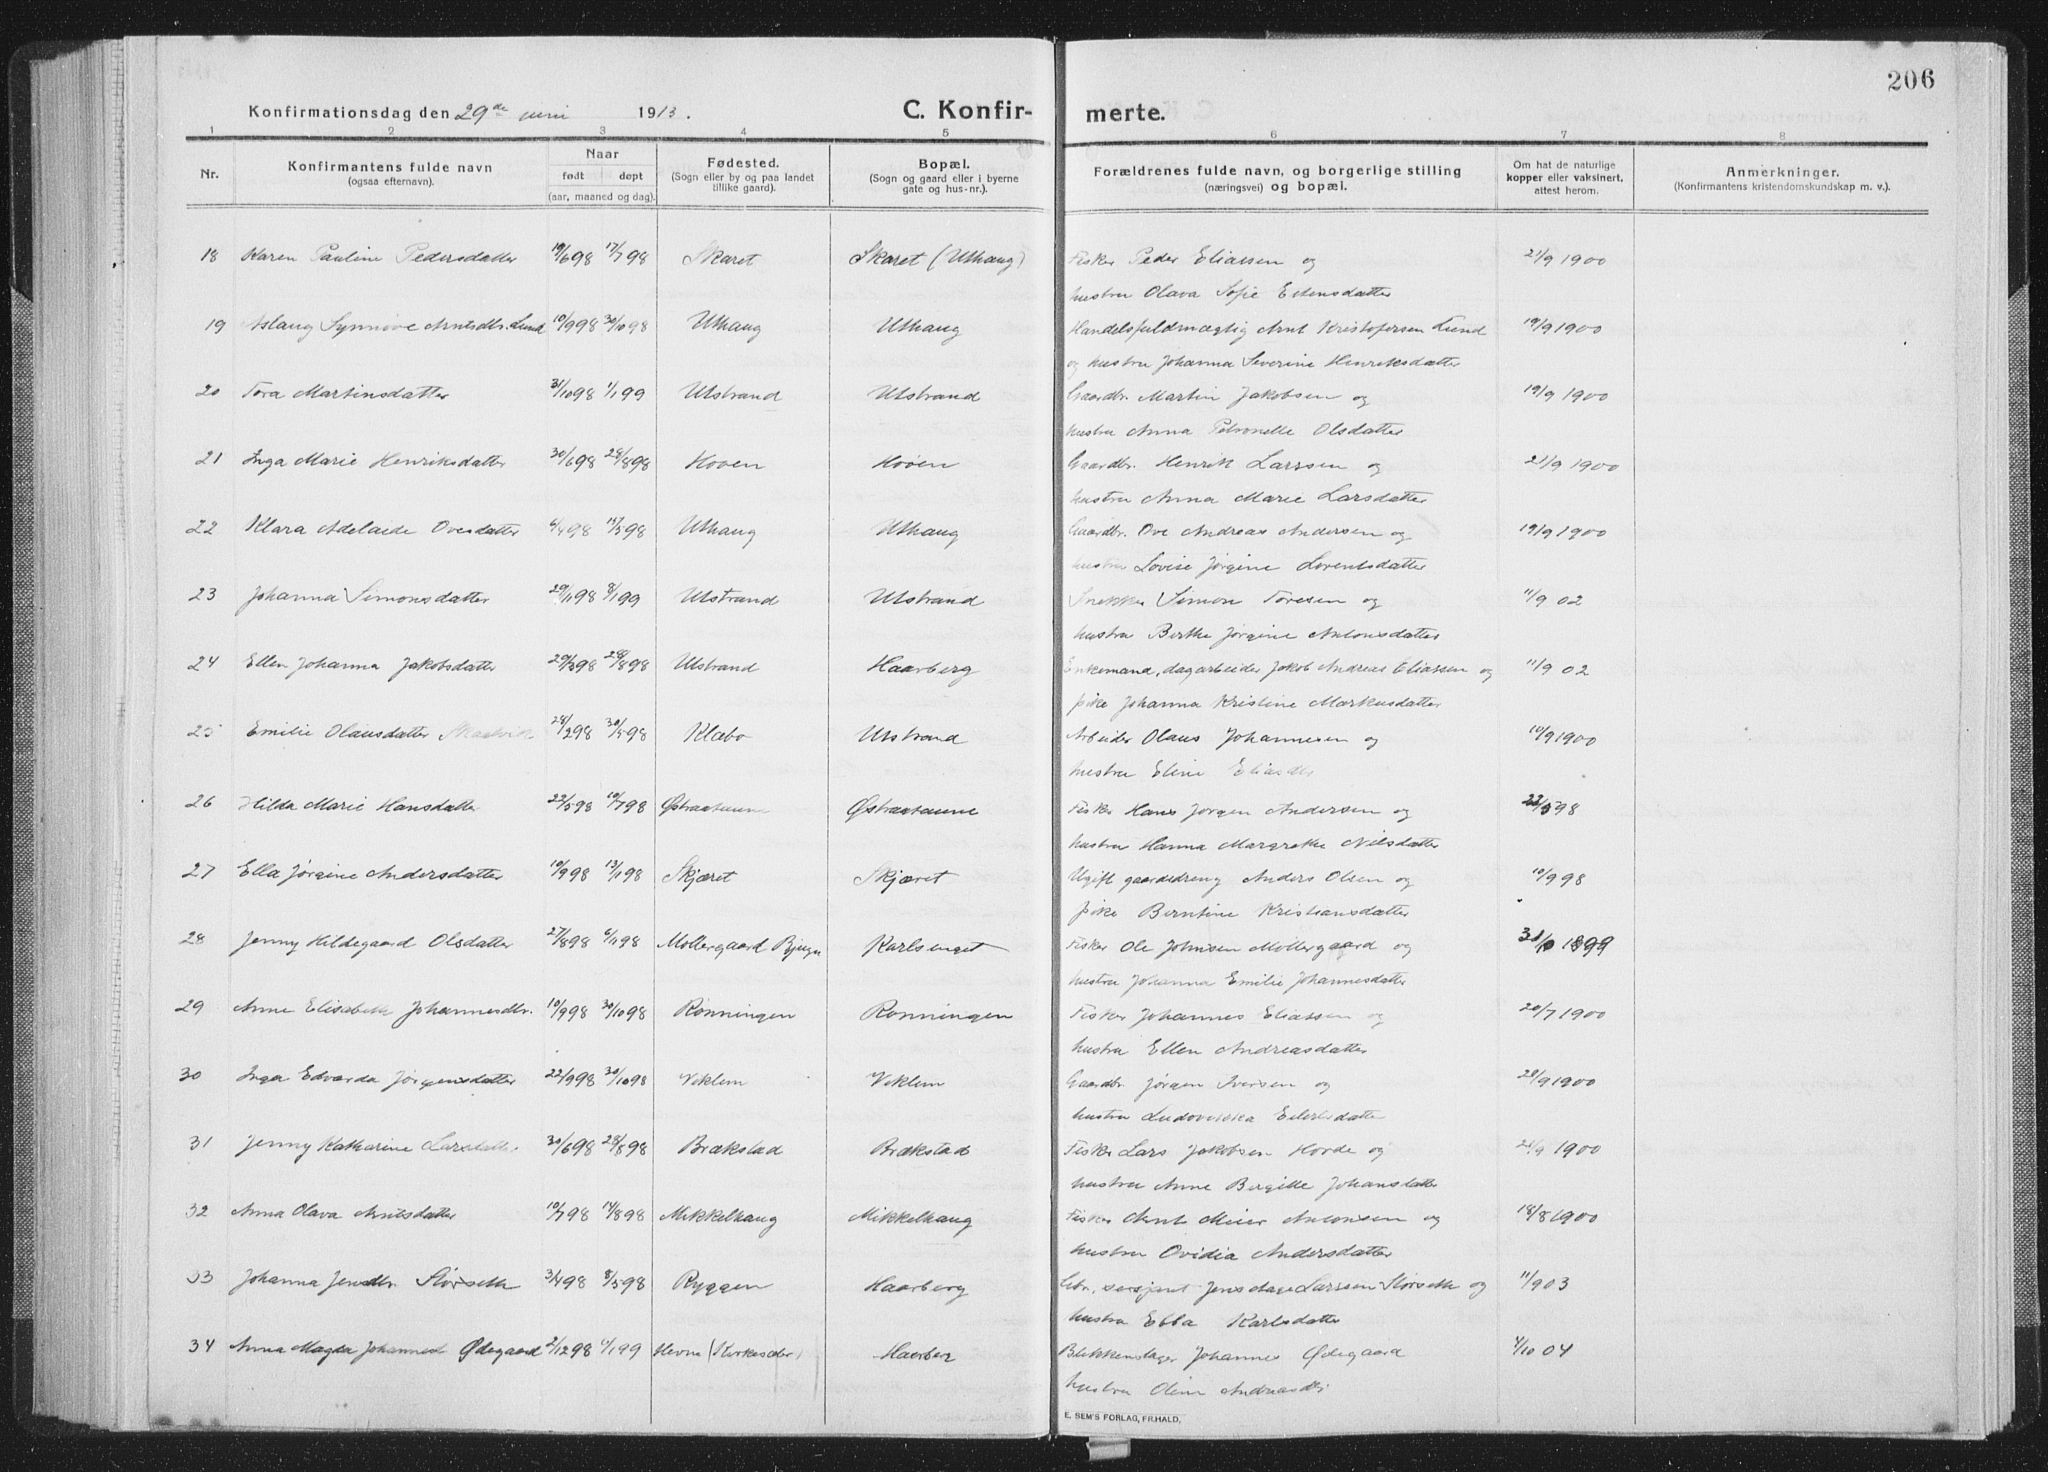 206
Konfirmationsdag den 29de juni 1913. C. Konfirmerte.
1 2 3 4 5 6 7 8
Nr. Konfirmantens fulde navn (ogsaa efternavn). Naar født døpt (aar, maaned og dag). Fødested. (Sogn eller by og paa landet tillike gaard). Bopæl. (Sogn og gaard eller i byerne gate og hus-nr.). Forældrenes fulde navn, og borgerlige stilling (næringsvei) og bopæl. Om hat de naturlige kopper eller vaksinert, attest herom. Anmerkninger. (Konfirmantens kristendomskundskap m. v.).
18 Karen Pauline Pedersdatter 19/6 98 17/7 98 Skaret Skaret (Uthaug) Fisker Peder Eliassen og 21/9 1900
hustru Olava Sofie Estensdatter
19 Aslaug Synnøve Arntsdtr. Lund 10/9 98 30/10 98 Uthaug Uthaug Handelsfuldmægtig Arnt Kristofersen Lund 19/9 1900
og hustru Johanna Severine Henriksdatter
20 Tora Martinsdatter 31/10 98 1/1 99 Utstrand Utstrand Gaardbr. Martin Jakobsen og 19/9 1900
hustru Anna Petronelle Olsdatter
21 Inga Marie Henriksdatter 30/6 98 28/8 98 Hoven Hoven Gaardbr. Henrik Larssen og 21/9 1900
hustru Anna Marie Larsdatter
22 Klara Adelaide Ovesdatter 6/4 98 15/5 98 Uthaug Uthaug Gaardbr. Ove Andreas Andersen og 19/9 1900
hustru Lovise Jørgine Lorentsdatter
23 Johanna Simonsdatter 29/11 98 8/1 99 Utstrand Utstrand Snekker Simon Toresen og 11/9 02
hustru Berthe Jørgine Antonsdatter
24 Ellen Johanna Jakobsdatter 29/3 98 28/8 98 Utstrand Haarberg Enkemand, dagarbeider Jakob Andreas Eliassen og 11/9 02
pike Johanna Kristine Markusdatter
25 Emilie Olausdatter 28/2 98 30/5 98 Klæbo Utstrand Arbeider Olaus Johannesen og 10/9 1900
hustru Eline Eliasdtr
26 Hilda Marie Hansdatter 22/5 98 10/7 98 Østraataunn Østraataune Fisker Hans Jørgen Andersen og 22/5 98
hustru Hanna Margrethe Nilsdatter
27 Ella Jørgine Andersdatter 10/9 98 13/11 98 Skjæret Skjæret Ugift gaardsdreng Anders Olsen og 10/9 98
pike Berntine Kristiansdatter
28 Jenny Hildegaard Olsdatter 27/8 98 6/11 98 Møllergaard Bjugn Karlsenget Fisker Ole Johnsen Møllergaard og 1899
hustru Johanna Emilie Johannesdatter
29 Anne Elisabeth Johannesdtr. 10/9 98 30/10 98 Rønningen Rønningen Fisker Johannes Eliassen og 20/7 1900
hustru Ellen Andreasdatter
30 Inga Edvarda Jørgensdatter 22/9 98 30/10 98 Viklem Viklem Gaardbr. Jørgen Iversen og 20/9 1900
hustru Ludovikka Eilertsdatter
31 Jenny Katharine Larsdatter 30/6 98 28/8 98 Brækstad Brækstad Fisker Lars Jakobsen Hovde og 21/9 1900
hustru Anne Birgitte Johansdatter
32 Anna Olava Arntsdatter 10/7 98 14/8 98 Mikkelhaug Mikkelhaug Fisker Arnt Meier Antonsen og 18/8 1900
hustru Ovidia Andersdatter
33 Johanna Jensdtr. Størseth 3/4 98 8/5 98 Ryggen Haarberg sersjant Jens Larssen Størseth og 11/9 03
hustru Ebba Karlsdatter
34 Anna Magda Johannesd Ødegaard 2/12 98 6/1 99 Hevne Haarberg Blikkenslager Johannes Ødegaard 4/10 04
hustru Oline Andreasdtr.
E. SEM'S FORLAG, FR.HALD.